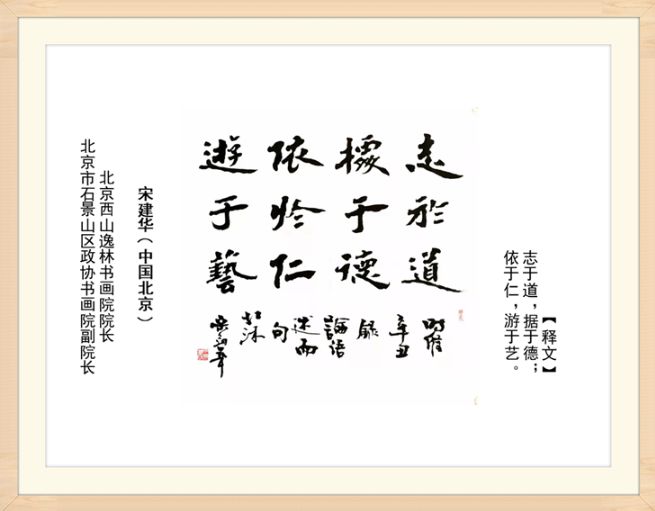 【释文】
志于道，据于德；
依于仁，游于艺。
志於道
據于德
依於仁
遊于藝
时维
辛丑
録
論語
述而
句
於沐
宋建华
宋建华（中国北京）
北京西山逸林书画院院长
北京市石景山区政协书画院副院长